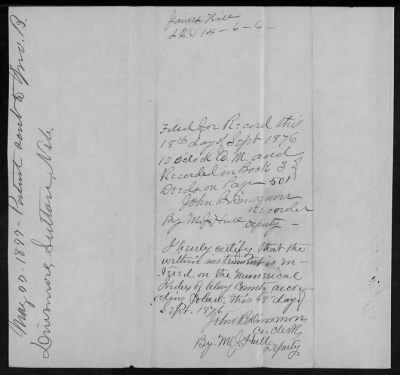 James Hill
Filed for Record this
18th day of Sept 1876
10 o'clock A.M. and
Recorded in Book 3 of
Deeds on Page 501
John B Dinsmore
Recorder
By M. J. Hull Deputy
I hereby certify that the
within instrument is en-
tered on the Numerical
Index of Clay County accor-
ding to law, this 18 day of
Sept. 1876
John B Dinsmore
Co. Clerk
By M. J. Hull
Deputy
May 20-1899- Patent sent to Jno. B.
Dinsmore, Sutton, Neb.